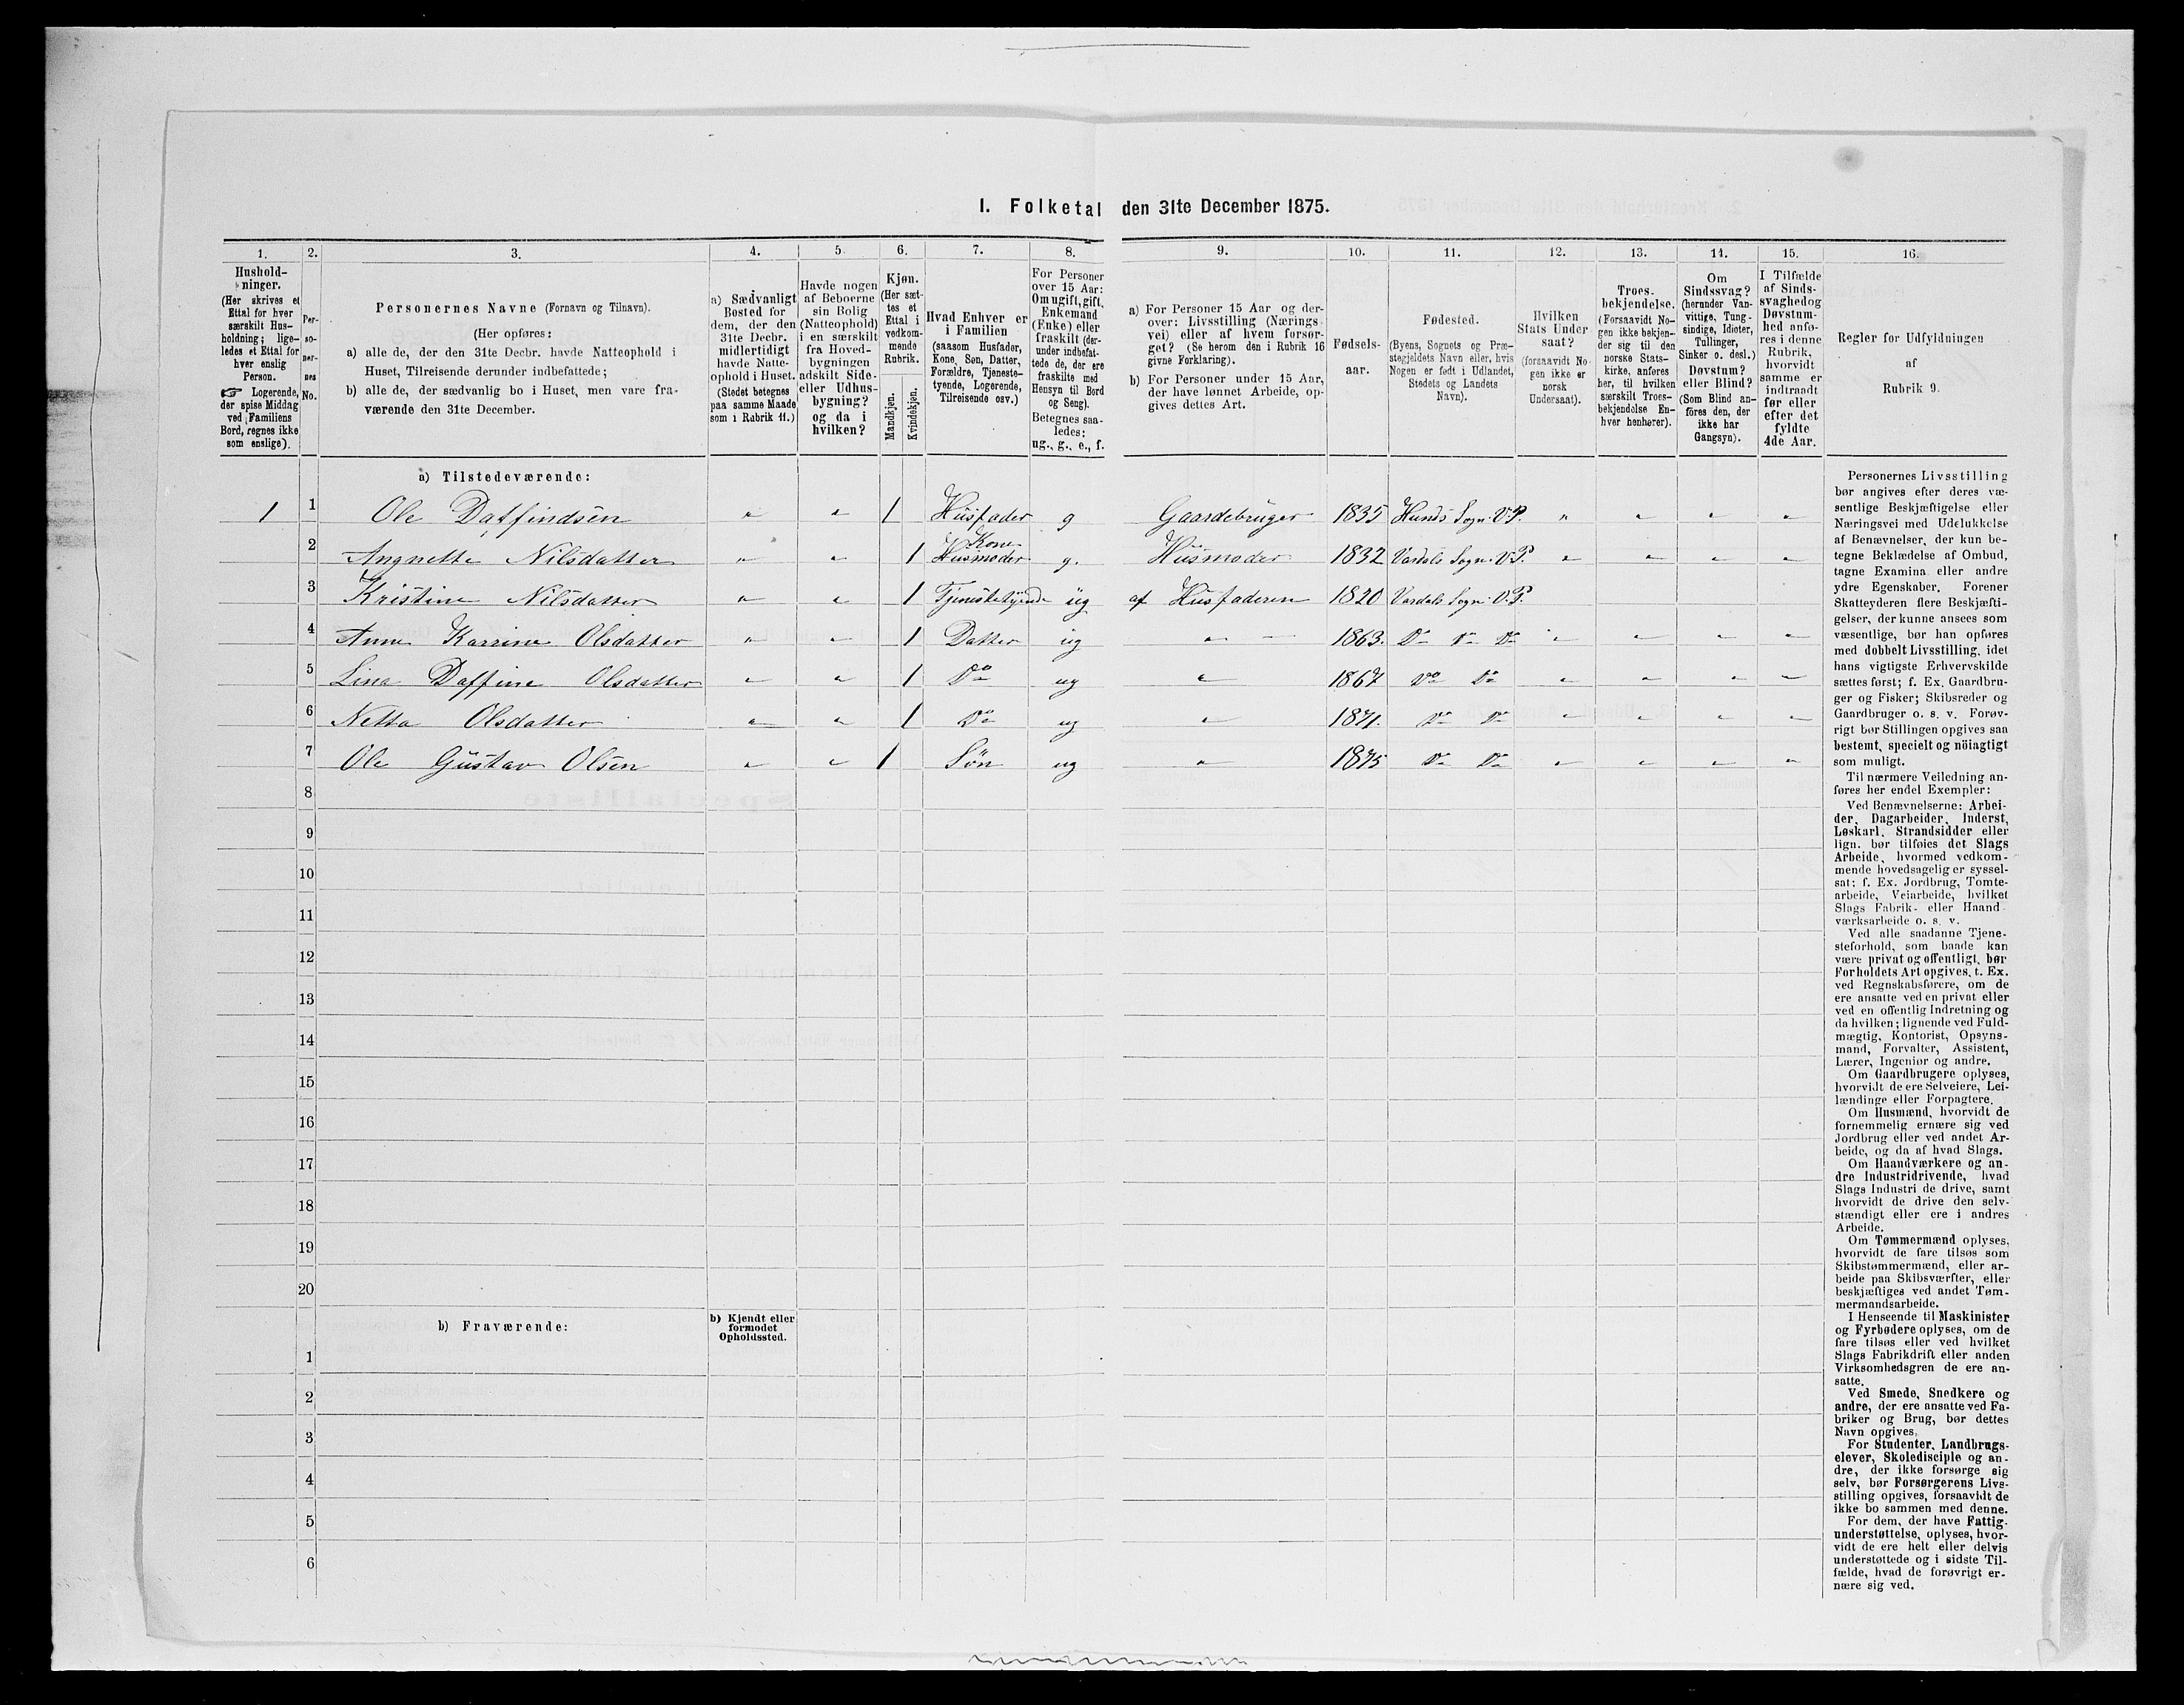 I. Folketal den 31te December 1875.
1. 2. 3. 4. 5. 6. 7. 8. 9. 10. 11. 12. 13. 14. 15. 16.
Hushold-
ninger.
(Her skrives et
Ettal for hver
særskilt Hus-
holdning; lige-
ledes et Ettal for
hver enslig
Person.
☞ Logerende,
der spise Middag
ved Familiens
Bord, regnes ikke
som enslige).
Per-
so-
ner-
nes
No.
Personernes Navne (Fornavn og Tilnavn).
(Her opføres:
a) alle de, der den 31te Decbr. havde Natteophold i
Huset, Tilreisende derunder indbefattede;
b) alle de, der sædvanlig bo i Huset, men vare fra-
værende den 31te December.
a) Sædvanligt
Bosted for
dem, der den
31te Decbr.
midlertidigt
havde Natte-
ophold i Huset.
(Stedet betegnes
paa samme Maade
som i Rubrik 11.)
Havde nogen
af Beboerne
sin Bolig
(Natteophold)
i en særskilt
fra Hoved-
bygningen
adskilt Side-
eller Udhus-
bygning?
og da i
hvilken?
Kjøn.
(Her sæt-
tes et
Ettal i
vedkom-
mende
Rubrik.
Mandkjøn.
Kvindekjøn.
Hvad Enhver er
i Familien
(saasom Husfader,
Kone, Søn, Datter,
Forældre, Tjeneste-
tyende, Logerende,
Tilreisende osv.)
For Personer
over 15 Aar:
Om ugift, gift,
Enkemand
(Enke) eller
fraskilt (der-
under indbefat-
tede de, der ere
fraskilte med
Hensyn til Bord
og Seng).
Betegnes saa-
ledes:
ug., g., e., f.
a) For Personer 15 Aar og der-
over: Livsstilling (Nærings-
vei) eller af hvem forsør-
get? (Se herom den i Rubrik 16
givne Forklaring).
b) For Personer under 15 Aar,
der have lønnet Arbeide, op-
gives dettes Art.
Fødsels-
aar.
Fødested.
(Byens, Sognets og Præ-
stegjeldets Navn eller, hvis
Nogen er født i Udlandet,
Stedets og Landets
Navn).
Hvilken
Stats Under
saat?
(forsaavidt No-
gen ikke er
norsk
Undersaat).
Troes-
bekjendelse.
(Forsaavidt No-
gen ikke bekjen-
der sig til den
norske Stats-
kirke, anføres
her, til hvilken
særskilt Troes-
bekjendelse En-
hver henhører).
Om
Sindssvag?
(herunder Van-
vittige, Tung-
sindige, Idioter,
Tullinger,
Sinker o. desl.)
Døvstum?
eller Blind?
(Som Blind an-
føres den, der
ikke har
Gangsyn).
I Tilfælde
af Sinds-
svaghed og
Døvstum-
hed anfø-
res i denne
Rubrik,
hvorvidt
samme er
indtraadt
før eller
efter det
fyldte
4de Aar.
Regler for Udfyldningen
af
Rubrik 9.
a) Tilstedeværende:
1 1 Ole Daffindsen " " 1 Husfader g Gaardebruger 1835 Hunds Sogn V.P. " " " "
Kone
2 Angnette Nilsdatter " " 1 Husmoder g. Husmoder 1832 Vardals Sogn V.P. " " " "
3 Kristine Nilsdatter " " 1 Tjenistetyende ug af Husfaderen 1820 Vardals Sogn V.P.
4 Anne Karrine Olsdatter " " 1 Datter ug " 1863. Do Do Do " " " "
5 Lina Daffine Olsdatter " " 1 Do ug " 1867 Do Do " " " "
6 Netta Olsdatter " " 1 Do ug " 1871. Do Do " " " "
7 Ole Gustav Olsen " " 1 Søn ug " 1875 Do Do " " " "
8
9
10
11
12
13
14
15
16
17
18
19
20
b) Fraværende:
b) Kjendt eller
formodet
Opholdssted.
1
2
3
4
5
6
Personernes Livsstilling
bør angives efter deres væ-
sentlige Beskjæftigelse eller
Næringsvei med Udelukkelse
af Benævnelser, der kun be-
tegne Beklædelse af Ombud,
tagne Examina eller andre
ydre Egenskaber. Forener
Skatteyderen flere Beskjæfti-
gelser, der kunne ansees som
væsentlige, bør han opføres
med dobbelt Livsstilling, idet
hans vigtigste Erhvervskilde
sættes først; f. Ex. Gaardbru-
ger og Fisker; Skibsreder og
Gaardbruger o. s. v. Forøv-
rigt bør Stillingen opgives saa
bestemt, specielt og nöiagtigt
som muligt.
Til nærmere Veiledning an-
føres her endel Exempler:
Ved Benævnelserne: Arbei-
der, Dagarbeider, Inderst,
Løskarl, Strandsidder eller
lign. bør tilføies det Slags
Arbeide, hvormed vedkom-
mende hovedsagelig er syssel-
sat; f. Ex. Jordbrug, Tomte-
arbeide, Veiarbeide, hvilket
Slags Fabrik- eller Haand-
værksarbeide o. s. v.
Ved alle saadanne Tjene-
steforhold, som baade kan
være privat og offentligt, bør
Forholdets Art opgives, t. Ex.
ved Regnskabsførere, om de
ere ansatte ved en privat eller
ved en offentlig Indretning og
da hvilken; lignende ved Fuld-
mægtig, Kontorist, Opsyns-
mand, Forvalter, Assistent,
Lærer, Ingeniør og andre.
Om Gaardbrugere oplyses,
hvorvidt de ere Selveiere, Lei-
lændinge eller Forpagtere.
Om Husmænd, hvorvidt de
fornemmelig ernære sig ved
Jordbrug eller ved andet Ar-
beide, og da af hvad Slags.
Om Haandværkere og an-
dre Industridrivende, hvad
Slags Industri de drive, samt
hvorvidt de drive den selv-
stændigt eller ere i andres
Arbeide.
Om Tømmermænd oplyses,
hvorvidt de fare tilsøs som
Skibstømmermænd, eller ar-
beide paa Skibsværfter, eller
beskjæftiges ved andet Tøm-
mermandsarbeide.
I Henseende til Maskinister
og Fyrbødere oplyses, om de
fare tilsøs eller ved hvilket
Slags Fabrikdrift eller anden
Virksomhedsgren de ere an-
satte.
Ved Smede, Snedkere og
andre, der ere ansatte ved Fa-
briker og Brug, bør dettes
Navn opgives.
For Studenter, Landbrugs-
elever, Skoledisciple og an-
dre, der ikke forsørge sig
selv, bør Forsørgerens Livs-
stilling opgives, forsaavidt de
ikke bo sammen med denne.
For dem, der have Fattig-
understøttelse, oplyses, hvor-
vidt de ere helt eller delvis
understøttede og i sidste Til-
fælde, hvad de forøvrigt er-
nære sig ved.